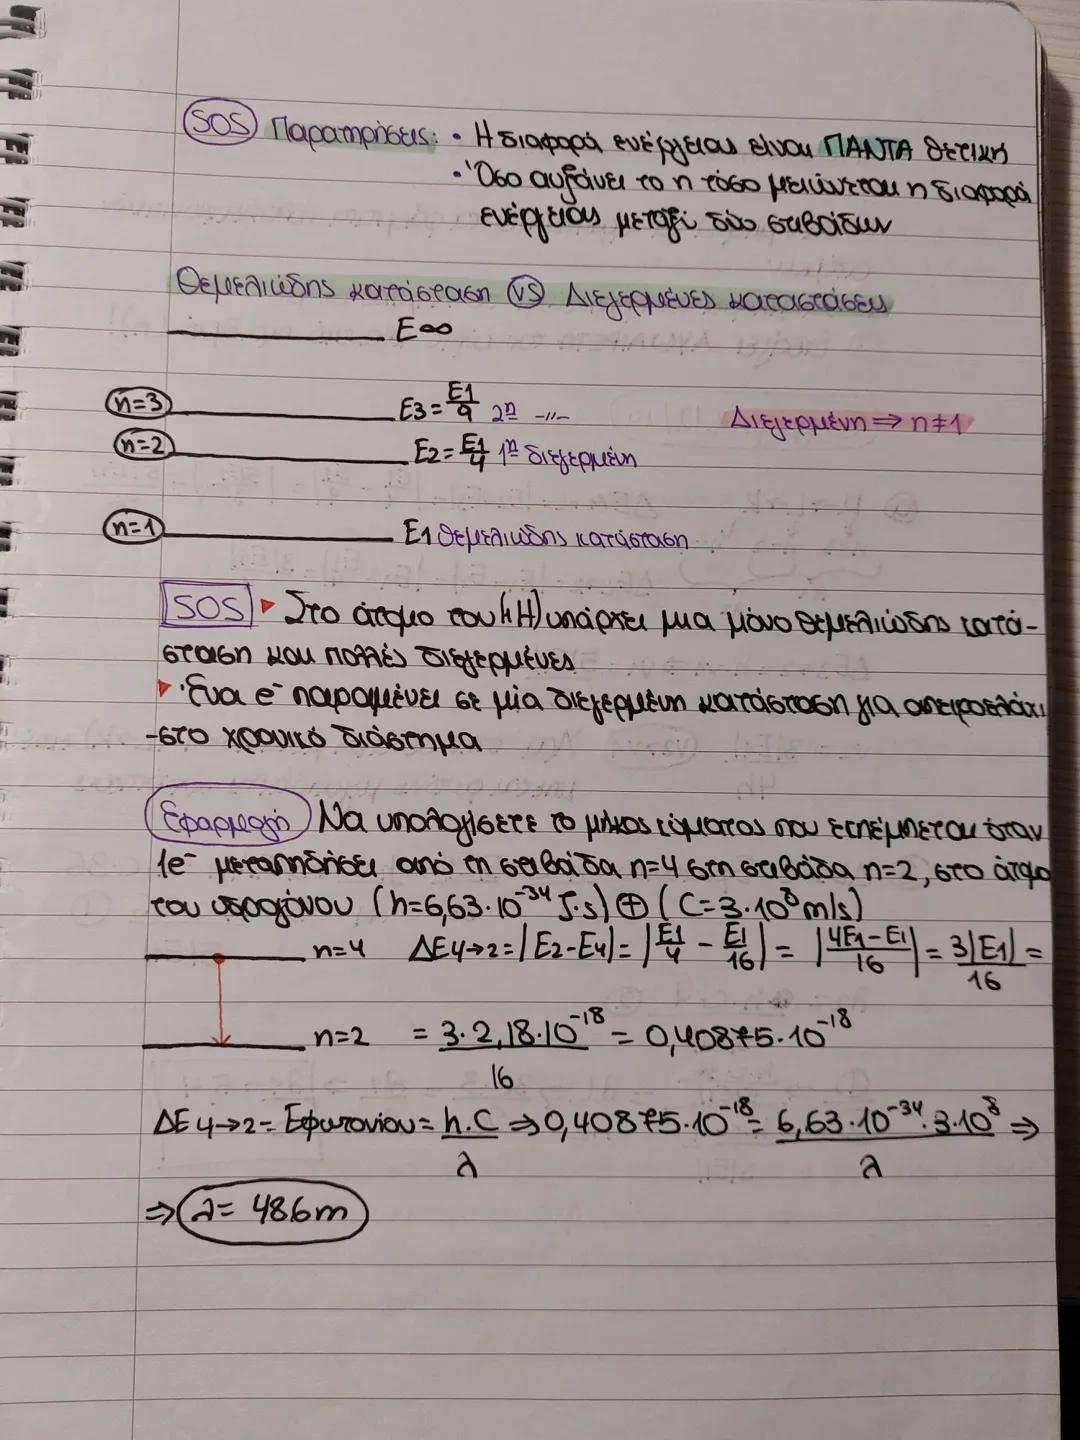 SOS Παρατηρήσεις: • Η διαφορά ενέργειας είναι ΠΑΝΤΑ θετική
• Όσο αυξάνει το n τόσο μειώνεται η διαφορά
ενέργειας μεταξύ δύο στιβάδων
Θεμελιώδης κατάσταση VS Διεγερμένες καταστάσεις
E∞
n=3 E3=E1/9 2η -//-
Διεγερμένη ⇒ n≠1
n=2 E2=E1/4 1η διεγερμένη
n=1 E1 θεμελιώδης κατάσταση
SOS ▸ Στο άτομο του (1H) υπάρχει μια μόνο θεμελιώδης κατά-
σταση και πολλές διεγερμένες
▸ Ένα e⁻ παραμένει σε μία διεγερμένη κατάσταση για απειροελάχι
-στο χρονικό διάστημα
Εφαρμογή Να υπολογίσετε το μήκος κύματος που εκπέμπεται όταν
1e⁻ μεταπηδήσει από τη στιβάδα n=4 στη στιβάδα n=2, στο άτομο
του υδρογόνου (h=6,63·10⁻³⁴ J·s) ⊕ (C=3·10⁸ m/s)
n=4 ΔΕ4→2=|E2-E4|=|E1/4 - E1/16|=|4E1-E1/16|=3|E1|/16=
n=2 = 3·2,18·10⁻¹⁸/16 = 0,40875·10⁻¹⁸
ΔΕ4→2= Εφωτονίου= h.C/λ ⇒ 0,40875·10⁻¹⁸= 6,63·10⁻³⁴·3·10⁸/λ ⇒
⇒ λ= 486m